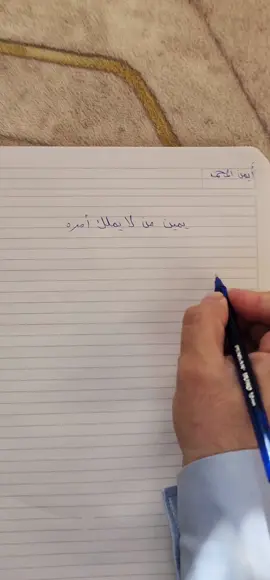 أيمن
يمين من لا يملك أمره